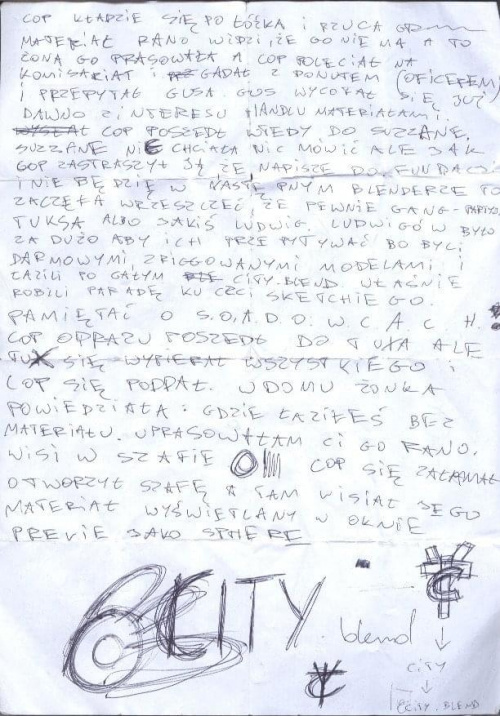 COP KŁADZIE SIĘ PO ŁÓŻKA I RZUCA
MATERIAŁ RANO WIDZI, ŻE GO NIE MA A TO
ŻONA GO PRASOWAŁA A COP POLECIAŁ NA
KOMISARIAT I GADAŁ Z DONUTEM (OFICEREM)
I PRZEPYTAŁ GUSA. GUS WYCOFAŁ SIĘ JUŻ
DAWNO Z INTERESU HANDLU MATERIAŁAMI.
COP POSZEDŁ WTEDY DO SUZZANE.
SUZZANE NIE CHCIAŁA NIC MÓWIĆ ALE JAK
COP ZASTRASZYŁ JĄ ŻE NAPISZE DO FUNDACJI
I NIE BĘDZIE W NASTĘPNYM BLENDERZE TO
ZACZĘŁA WRZESZCZEĆ, ŻE PEWNIE GANG
TUKSA ALBO JAKIŚ LUDWIG. LUDWIGÓW BYŁO
ZA DUŻO ABY ICH PRZEPYTYWAĆ BO BYLI
DARMOWYMI, ZRIGGOWANYMI MODELAMI I
ŁAZILI PO CAŁYM CITY.BLEND. WŁAŚNIE
ROBILI PARADĘ KU CZCI SKETCHIEGO.
PAMIĘTAĆ O S.O.A.D.O.W.C.A.C.H.
COP OD RAZU POSZEDŁ DO TUXA ALE
TUX SIĘ WYPIERAŁ WSZYSTKIEGO I
COP SIĘ PODDAŁ. W DOMU ŻONKA
POWIEDZIAŁA: GDZIE ŁAZIŁEŚ BEZ
MATERIAŁU. UPRASOWAŁAM CI GO RANO.
WISI W SZAFIE COP SIĘ ZAŁAMAŁ
OTWORZYŁ SZAFĘ A TAM WISIAŁ JEGO
MATERIAŁ WYŚWIETLANY W OKNIE
PREVIE JAKO SPHERE
CITY.blend
CITY
CITY.BLEND